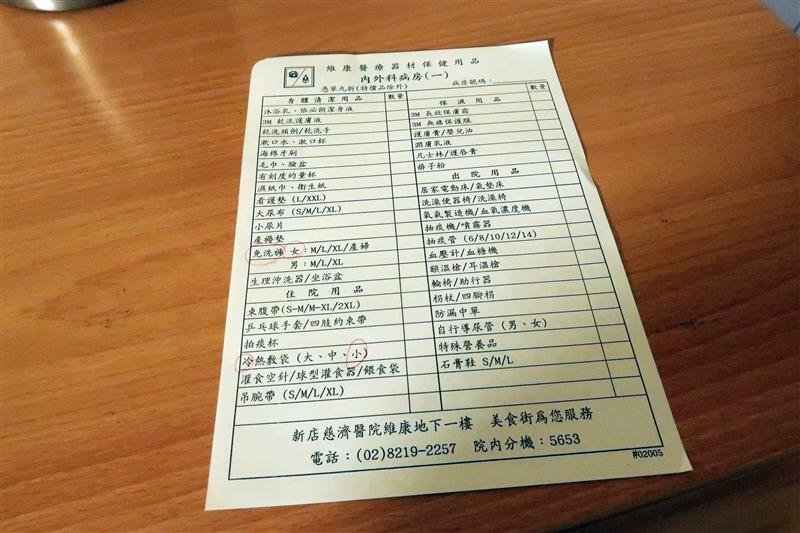 維康醫療器材保健用品
內外科病房(一)
憑單九折(特價品除外)
病房號碼:
身體清潔用品 數量
沐浴乳、依必朗潔身液
3M 乾洗護膚液
乾洗頭劑/乾洗手
漱口水、漱口杯
海棉牙刷
毛巾、臉盆
有刻度的量杯
濕紙巾、衛生紙
看護墊 (L/XXL)
大尿布 (S/M/L/XL)
小尿片
產褥墊
免洗褲 女:M/L/XL/產婦
男:M/L/XL
生理沖洗器/坐浴盆
住院用品
束腹帶(S-M/M-XL/2XL)
乒乓球手套/四肢約束帶
拍痰杯
冷熱敷袋 (大、中、小)
灌食空針/球型灌食器/餵食袋
吊腕帶 (S/M/L/XL)
保濕用品 數量
3M 長效保膚霜
3M 無痛保護膜
護膚膏/嬰兒油
潤膚乳液
凡士林/護唇膏
痱子粉
出院用品
居家電動床/氣墊床
洗澡便器椅/洗澡椅
氧氣製造機/血氧濃度機
抽痰機/噴霧器
抽痰管 (6/8/10/12/14)
血壓計/血糖機
額溫槍/耳溫槍
輪椅/助行器
拐杖/四腳拐
防漏中單
自行導尿管 (男、女)
特殊營養品
石膏鞋 S/M/L
新店慈濟醫院維康地下一樓 美食街為您服務
電話:(02)8219-2257 院內分機:5653
#02005